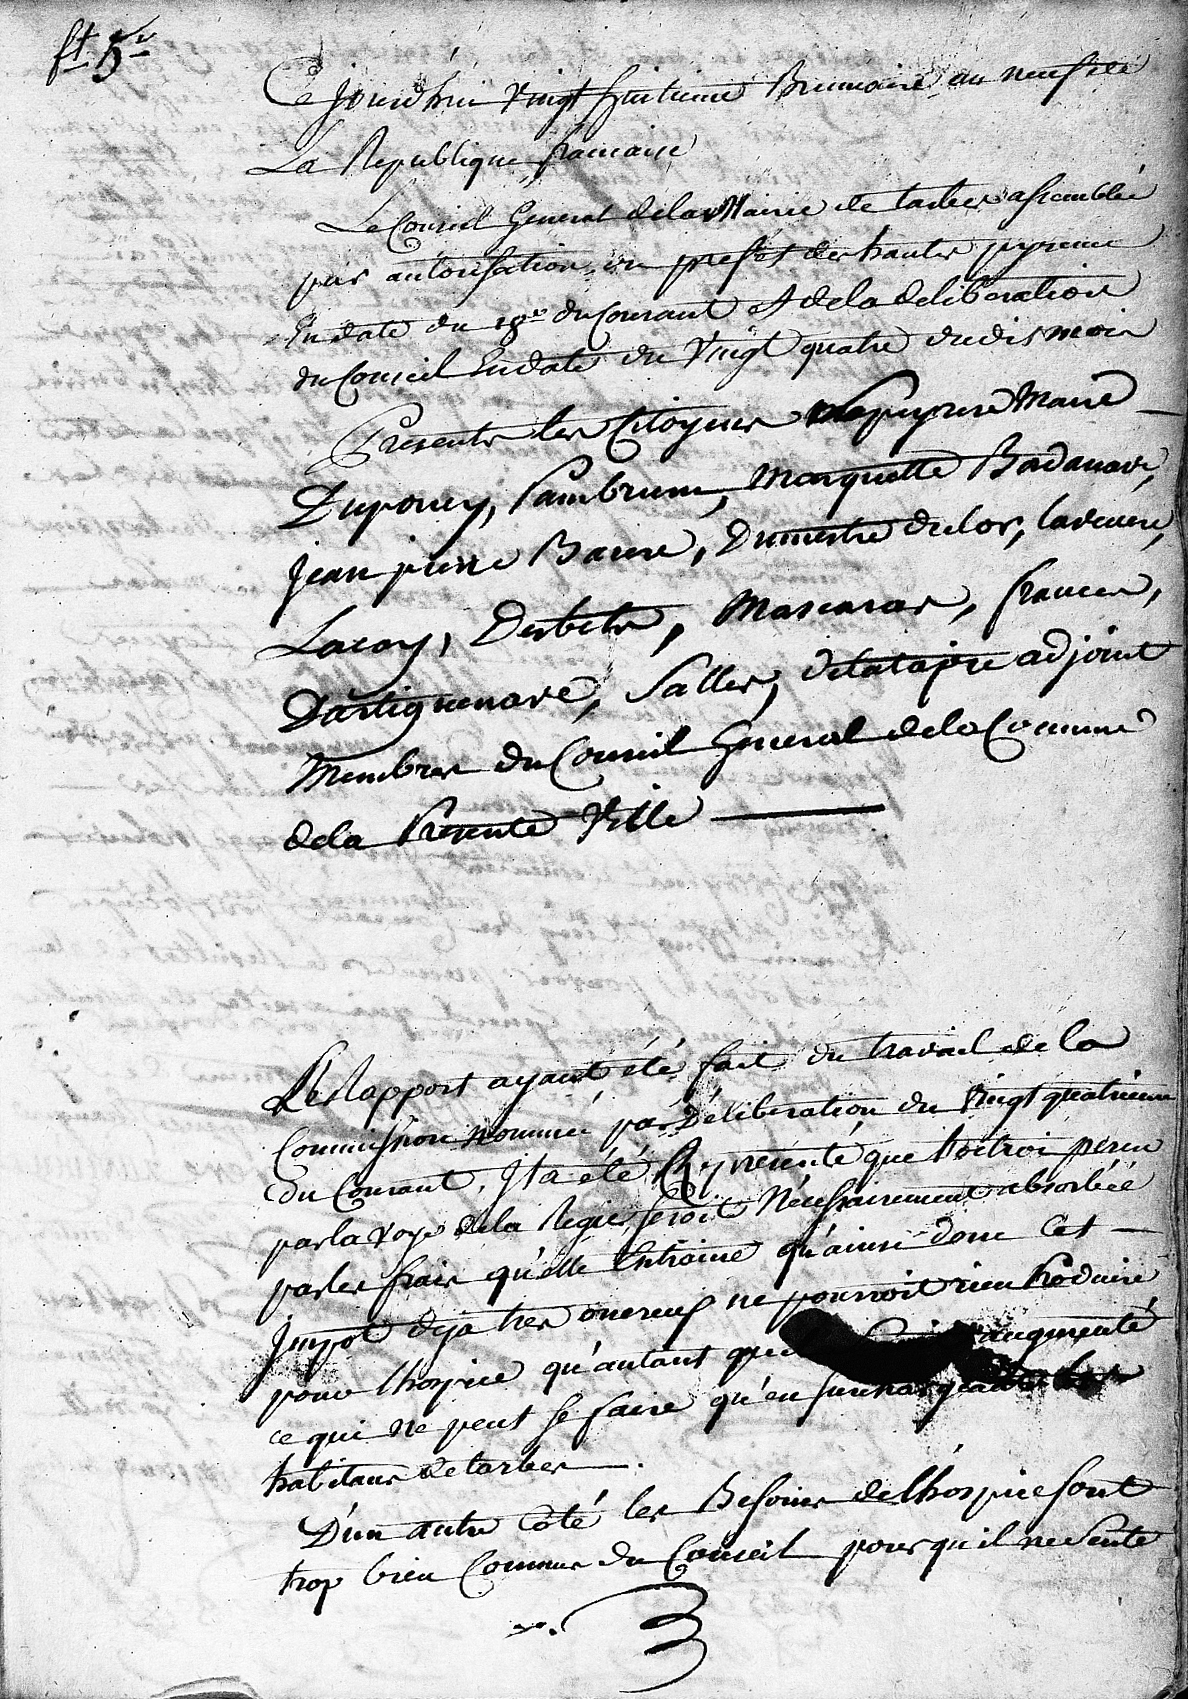 ft. 5.
Ce Jourdhui vingt huitieme Brumaire an neuf de
La Republique francaise
Le Conseil General dela Mairie de tarbes assemblée
par autorisation du prefet des hautes pyrenees
En date du 18e du Courant et dela deliberation
du Conseil En date du vingt quatre dudis mois
Presents les Citoyens Maire
Dupouey, Pambrun, Marquette Bordanave,
jean pierre Barere, Dumestre duclos, lavedere,
Lacay, Desbets, Mascaras, frances,
Dartiguenave, Salles, adjoint
Membres du Conseil General dela Commune
dela Presente Ville
Le Rapport ayant été fait du travail de la
Commission nommée par Déliberation du vingt quatrieme
du Courant, Il a été Représenté que l'octroi percu
par la voye dela Regie, seroit Nécessairement absorbée
par les frais qu'elle Entraine qu'ainsi donc Cet
Impot déja tres onereux ne pourroit rien Produire
pour lhospice qu'autant que augmenté
ce qui ne peut se faire qu'en surchargeant les
habitans de tarbes.
D'un autre Côté les Besoins de lhospice sont
trop bien Connus du Conseil pour qu'il ne sente